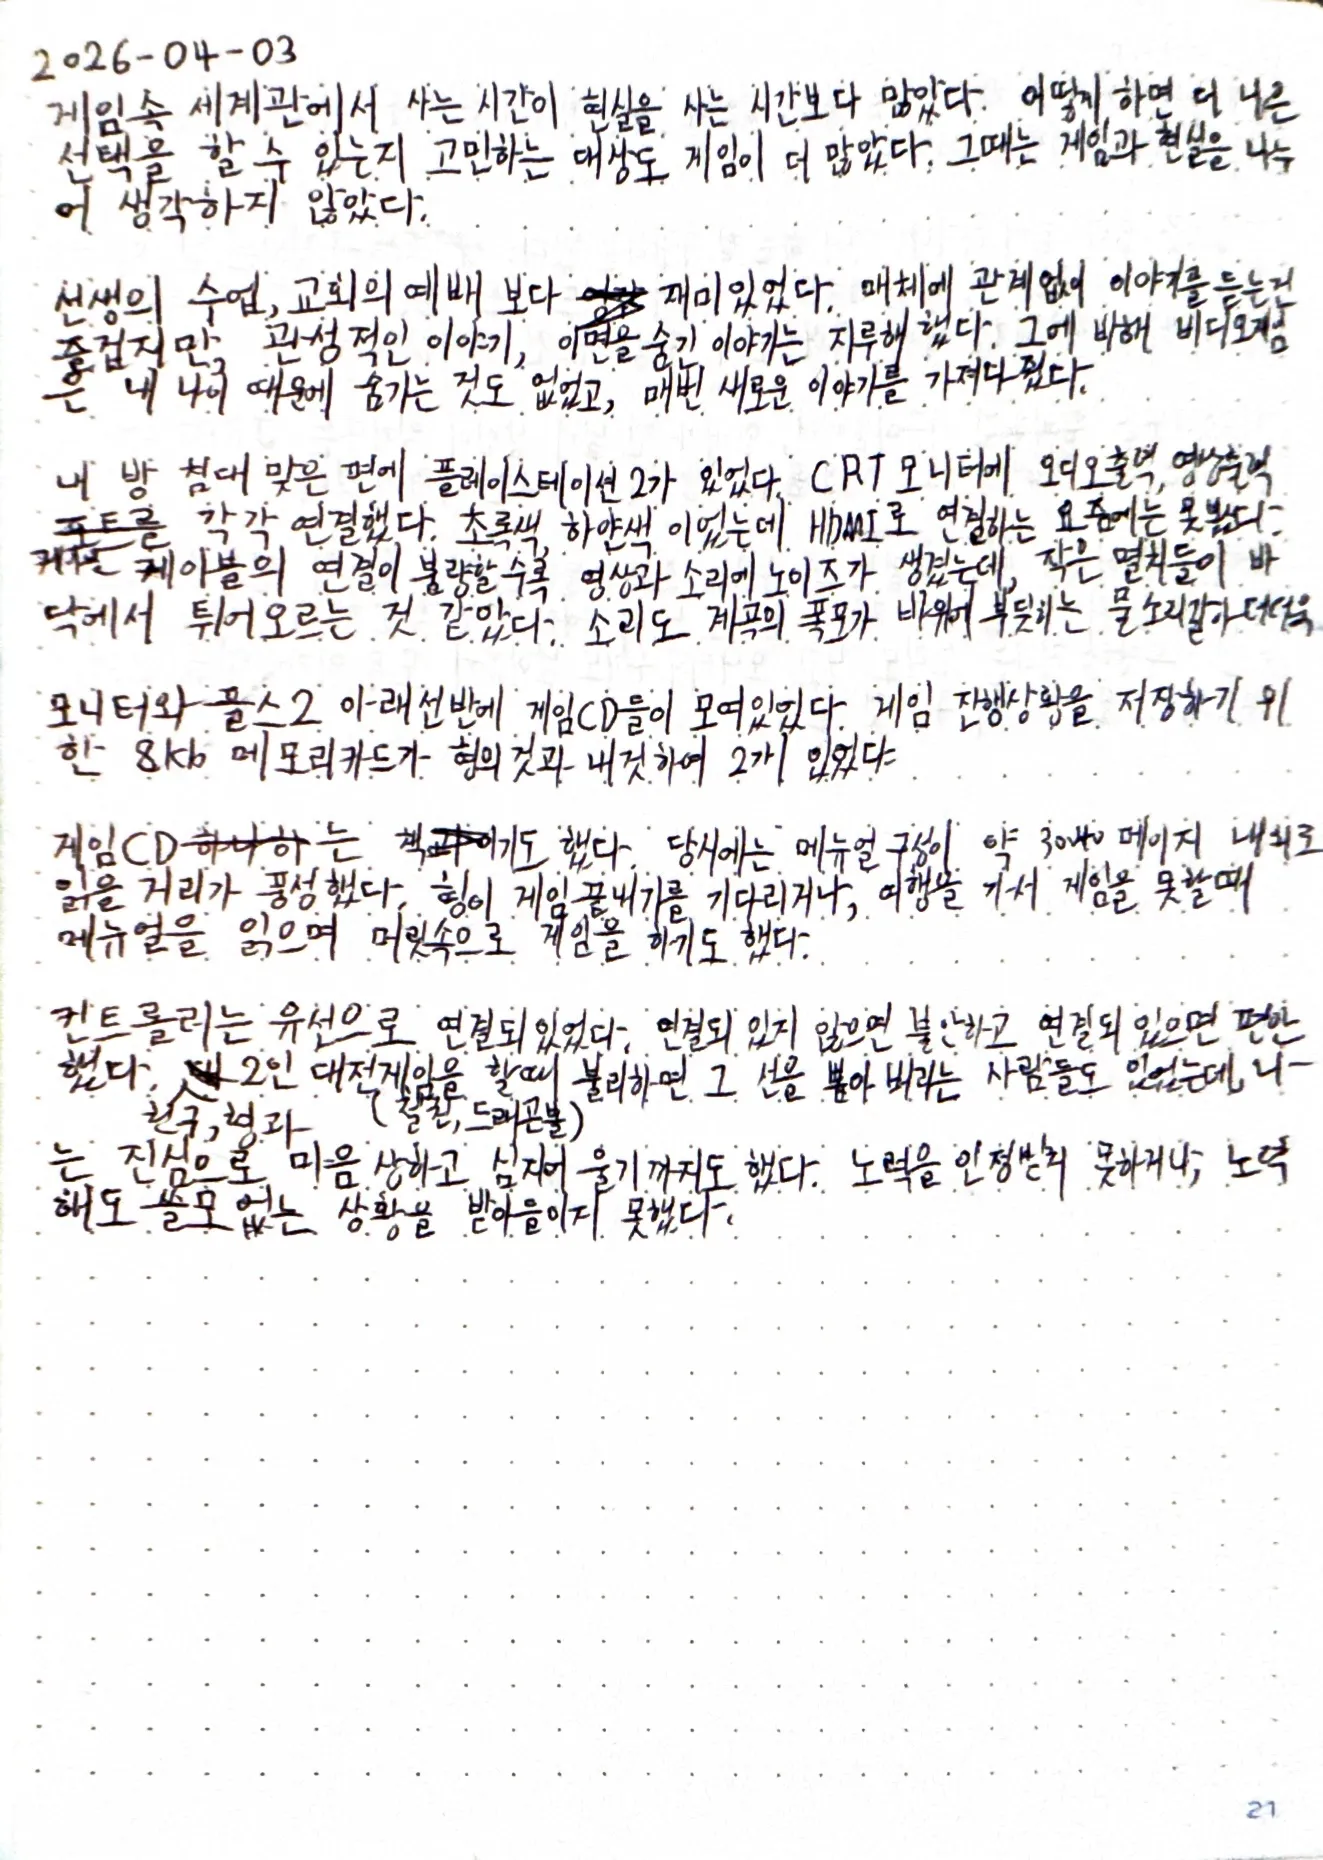 2026-04-03
게임속 세계관에서 사는 시간이 현실을 사는 시간보다 많았다. 어떻게 하면 더 나은
선택을 할 수 있는지 고민하는 대상도 게임이 더 많았다. 그때는 게임과 현실을 나누
어 생각하지 않았다.
선생의 수업, 교회의 예배 보다 재미있었다. 매체에 관계없이 이야기를 듣는건
즐겁지만, 관성적인 이야기, 이면을 숨긴 이야기는 지루해 했다. 그에 비해 비디오게임
은 내 나이 때문에 숨기는 것도 없었고, 매번 새로운 이야기를 가져다 줬다.
내 방 침대 맞은 편에 플레이스테이션 2가 있었다. CRT 모니터에 오디오출력, 영상출력
포트를 각각 연결했다. 초록색, 하얀색 이었는데 HDMI로 연결하는 요즘에는 못봤다.
케이블의 연결이 불량할 수록 영상과 소리에 노이즈가 생겼는데, 작은 멸치들이 바
닥에서 튀어오르는 것 같았다. 소리도 계곡의 폭포가 바위에 부딪히는 물소리같아
모니터와 플스2 아래선반에 게임CD들이 모여있었다. 게임 진행상황을 저장하기 위
한 8Kb 메모리카드가 형의것과 내것하여 2개 있었다
게임CD 는 책이기도 했다. 당시에는 메뉴얼 구성이 약 페이지 내외로
읽을 거리가 풍성했다. 형이 게임 끝내기를 기다리거나, 여행을 가서 게임을 못할때
메뉴얼을 읽으며 머릿속으로 게임을 하기도 했다.
컨트롤러는 유선으로 연결되있었다. 연결되 있지 않으면 불안하고 연결되 있으면 편안
했다. 2인 대전게임을 할때 불리하면 그 선을 뽑아 버리는 사람들도 있었는데, 나
친구, 형과 (철권, 드래곤볼)
는 진심으로 마음 상하고 심지어 울기까지도 했다. 노력을 인정받지 못하거나, 노력
해도 쓸모 없는 상황을 받아들이지 못했다.
21